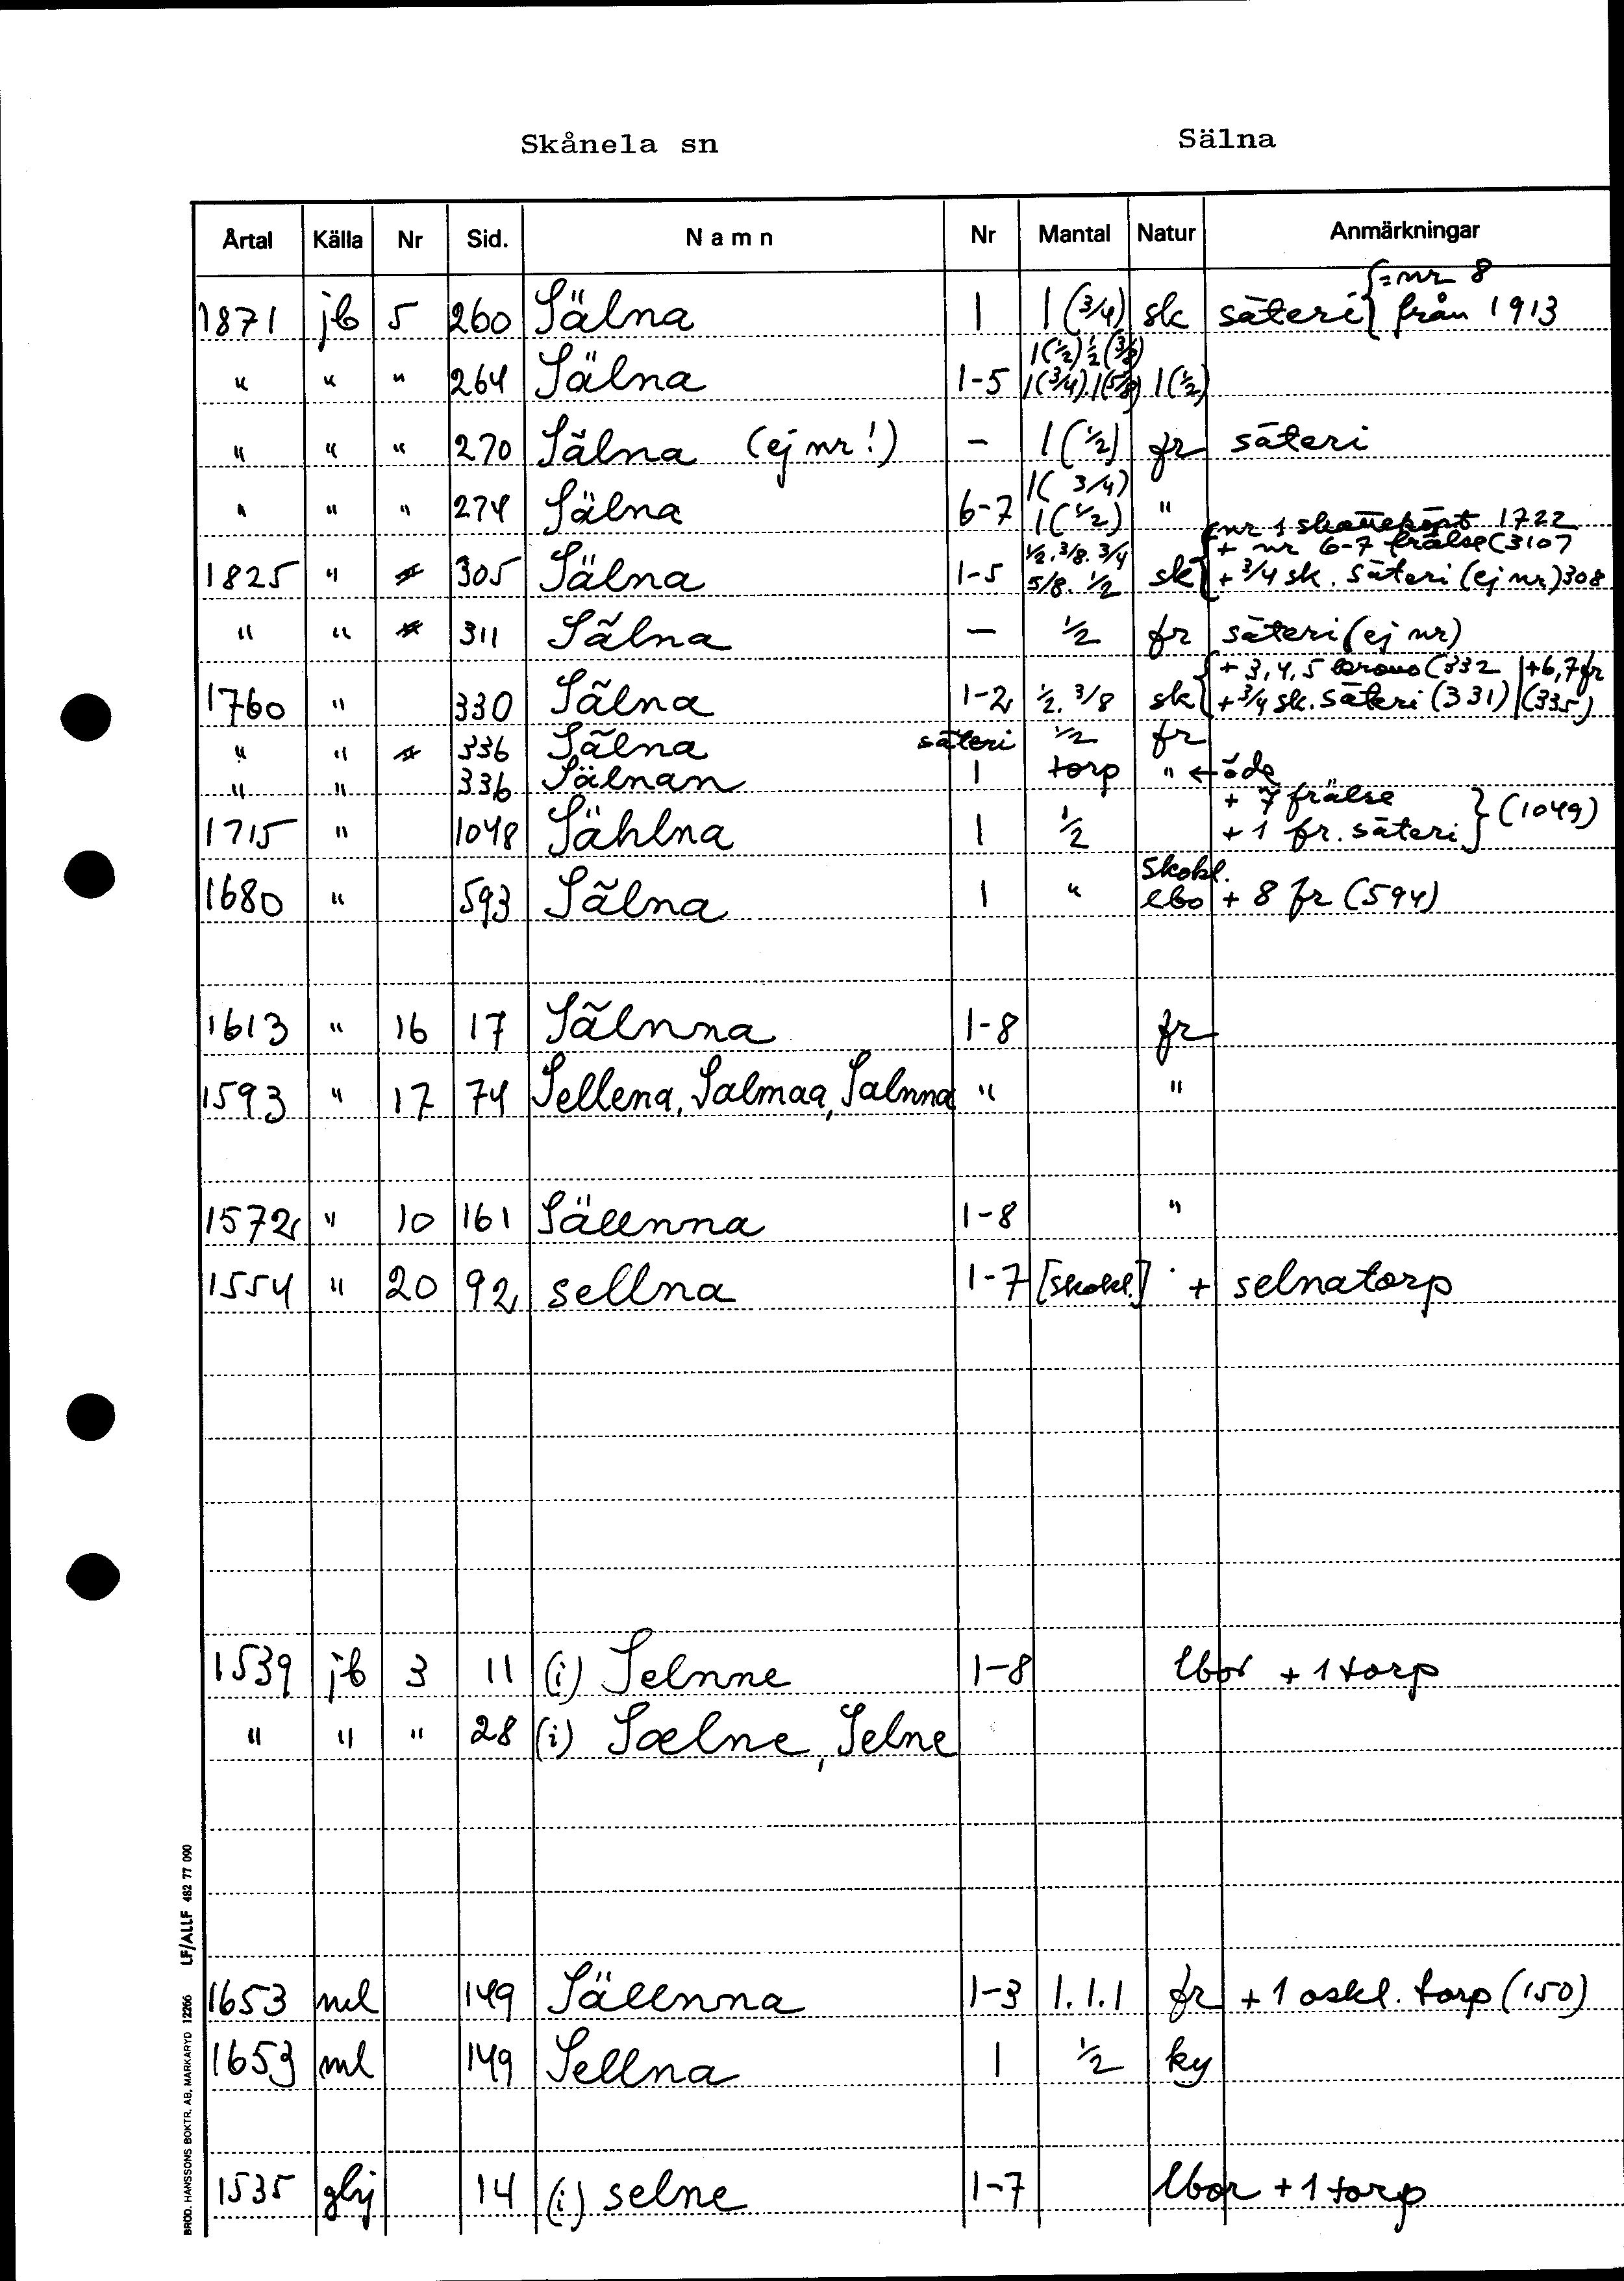 Skånela sn Sälna
Årtal Källa Nr Sid. Namn Nr Mantal Natur Anmärkningar
= nr 8
1871 jb 5 260 Sälna 1 1 (3/4) sk säteri från 1913
1(1/2) 1/2(3/8)
" " " 264 Sälna 1-5 1(3/4).1(5/8) 1(1/2)
" " " 270 Sälna (ej nr!) - 1(1/2) fr säteri
1(3/4)
" " " 274 Sälna 6-7 1(1/2) "
nr 1 skatteköpt 1722
1/2.3/8.3/4 + nr 6-7 frälse (310)
1825 " 305 Sälna 1-5 5/8.1/2 sk + 3/4 sk. säteri (ej nr) 308
" " 311 Sälna - 1/2 fr säteri (ej nr)
+ 3,4,5 krono (332 | +6,7 fr
1760 " 330 Sälna 1-2 1/2.3/8 sk + 3/4 sk. säteri (331) | (335)
" " 336 Sälna säteri 1/2 fr
" " 336 Sälnan 1 torp " ← öde
+ 7 frälse
1715 " 1048 Sählna 1 1/2 + 1 fr. säteri } (1049)
Skokl.
1680 " 593 Sälna 1 " lbo + 8 fr (594)
1613 " 16 17 Sälnna 1-8 fr
1593 " 17 74 Sellena, Salmaa, Salnna " "
1572 " 10 161 Sällnna 1-8 "
1554 " 20 92 sellna 1-7 [skokl.] + selnatorp
1539 jb 3 11 (i) Selnne 1-8 lbor + 1 torp
" " " 28 (i) Sælne, Selne
1653 ml 149 Sällnna 1-3 1.1.1 fr + 1 oskl. torp (150)
1653 ml 149 Sellna 1 1/2 ky
1535 ghj 14 (i) selne 1-7 lbor + 1 torp
BRÖD. HANSSONS BOKTR. AB, MARKARYD 12266 LF/ALLF 482 77 090